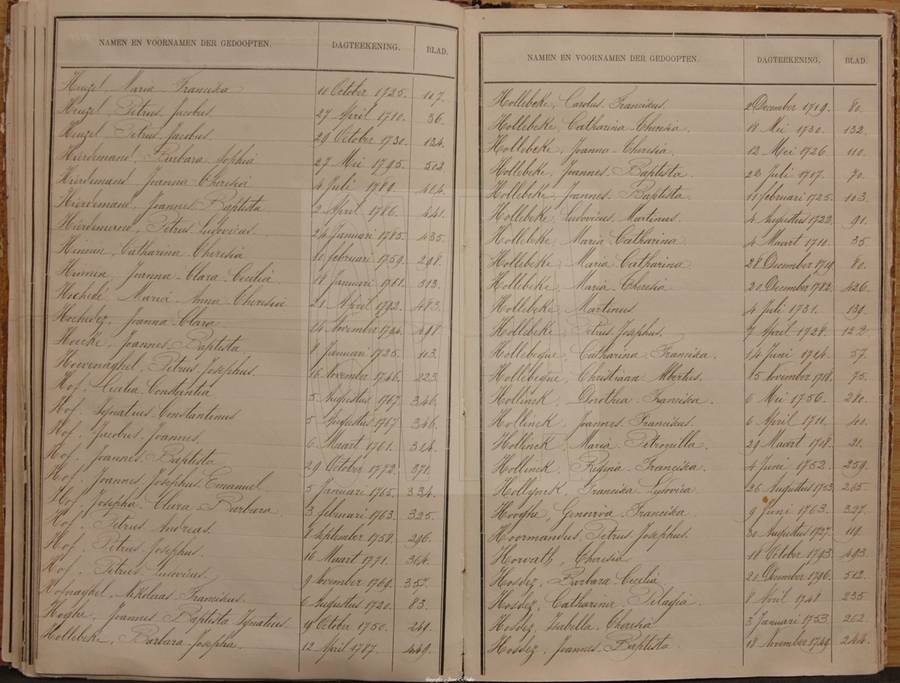 NAMEN EN VOORNAMEN DER GEDOOPTEN. DAGTEEKENING. BLAD.
Heuzel, Maria Franciska 11 October 1725. 117.
Heuzel, Petrus Jacobus 27 April 1710. 36.
Heuzel, Petrus Jacobus 29 October 1730. 134.
Hierdemans, Barbara Sophia 27 Mei 1795. 502
Hierdemans, Joanna Theresia 4 Juli 1780. 404.
Hierdemans, Joannes Baptista 2 April 1786. 441.
Hierdemans, Petrus Ludovicus 24 Januari 1785. 435.
Catharina Theresia 10 februari 1759. 298.
Joanna Clara Cecilia 18 Januari 1761. 313.
Maria Anna Theresia 21 April 1792. 483.
Joanna Clara 14 November 1794. 498.
Joannes Baptista 8 Januari 1725. 113.
Hoevenaghel, Petrus Josephus. 16 November 1746. 223.
Hof, Cecilia Constantia 5 Augustus 1767. 346.
Hof, Ignatius Constantinus 5 Augustus 1767. 346.
Hof, Jacobus Joannes. 6 Maart 1761. 314.
Hof, Joannes Baptista 29 October 1772. 371.
Hof, Joannes Josephus Emanuel 5 Januari 1765. 334.
Hof, Josepha Clara Barbara. 3 februari 1763. 325.
Hof, Petrus Andreas. 8 September 1758. 296.
Hof, Petrus Josephus 16 Maart 1771. 364.
Hof, Petrus Ludovicus. 9 November 1769. 357.
Hofnaghel, Nikolaas Franciskus. 6 Augustus 1720. 83.
Hoghe, Joannes Baptista Ignatius 19 October 1750. 249.
Hollebeke, Barbara Josepha. 12 April 1787. 449.
NAMEN EN VOORNAMEN DER GEDOOPTEN. DAGTEEKENING. BLAD.
Hollebeke, Carolus Franciskus. 2 December 1719. 80.
Hollebeke, Catharina Theresia. 18 Mei 1730. 132.
Hollebeke, Joanna Theresia. 12 Mei 1726. 110.
Hollebeke, Joannes Baptista 26 Juli 1717. 70.
Hollebeke, Joannes Baptista 11 februari 1725. 113.
Hollebeke, Ludovicus Martinus. 4 Augustus 1722. 91.
Hollebeke, Maria Catharina 4 Maart 1710. 35
Hollebeke, Maria Catharina 28 December 1719. 80.
Hollebeke, Maria Theresia 21 December 1782. 426.
Hollebeke, Martinus 4 Juli 1731. 139.
Hollebeke, Petrus Josephus. 7 April 1728. 122
Hollebeque, Catharina Franciska. 14 Juni 1714. 57.
Hollebeque, Christiaan Albertus. 15 November 1718. 75.
Hollinck, Dorothea Franciska. 6 Mei 1756. 280.
Hollinck, Joannes Franciskus. 6 April 1711. 40.
Hollinck, Maria Petronilla. 29 Maart 1708. 21.
Hollinck, Regina Franciska. 4 Juni 1752. 259.
Franciska Ludovica 26 Augustus 1753. 265.
Hooghe, Genoveva Franciska 9 Juni 1763. 327.
Hoormandus, Petrus Josephus. 30 Augustus 1727. 119.
Horvath, Theresia 18 October 1793. 493.
Hossez, Barbara Cecilia 21 December 1796. 512.
Hossez, Catharina Pelagia. 8 April 1748. 235
Hossez, Isabella Theresia 3 Januari 1753. 262.
Hossez, Joannes Baptista 18 November 1749. 244.